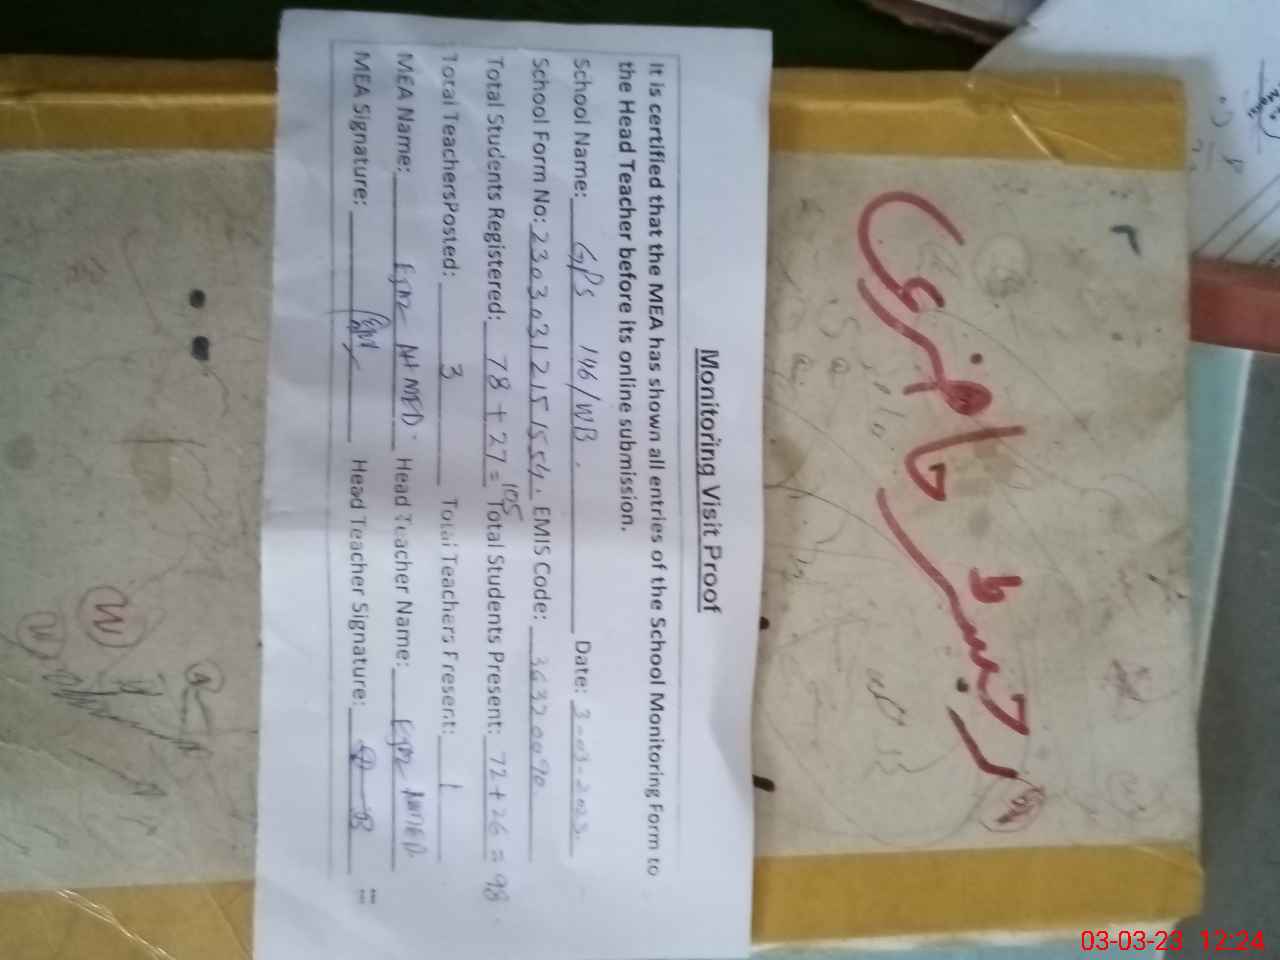 Monitoring Visit Proof
It is certified that the MEA has shown all entries of the School Monitoring Form to
the Head Teacher before its online submission.
School Name: GPS 146/WB. Date: 3-03-2023.
School Form No: 23030312151554. EMIS Code: 36320090
Total Students Registered: 78 + 27 = 105 Total Students Present: 72 + 26 = 98
Total TeachersPosted: 3 Total Teachers Present: 1
MEA Name: AHMED. Head Teacher Name: AHMED
MEA Signature: Head Teacher Signature:
رجسٹر حاضری
03-03-23 12:24